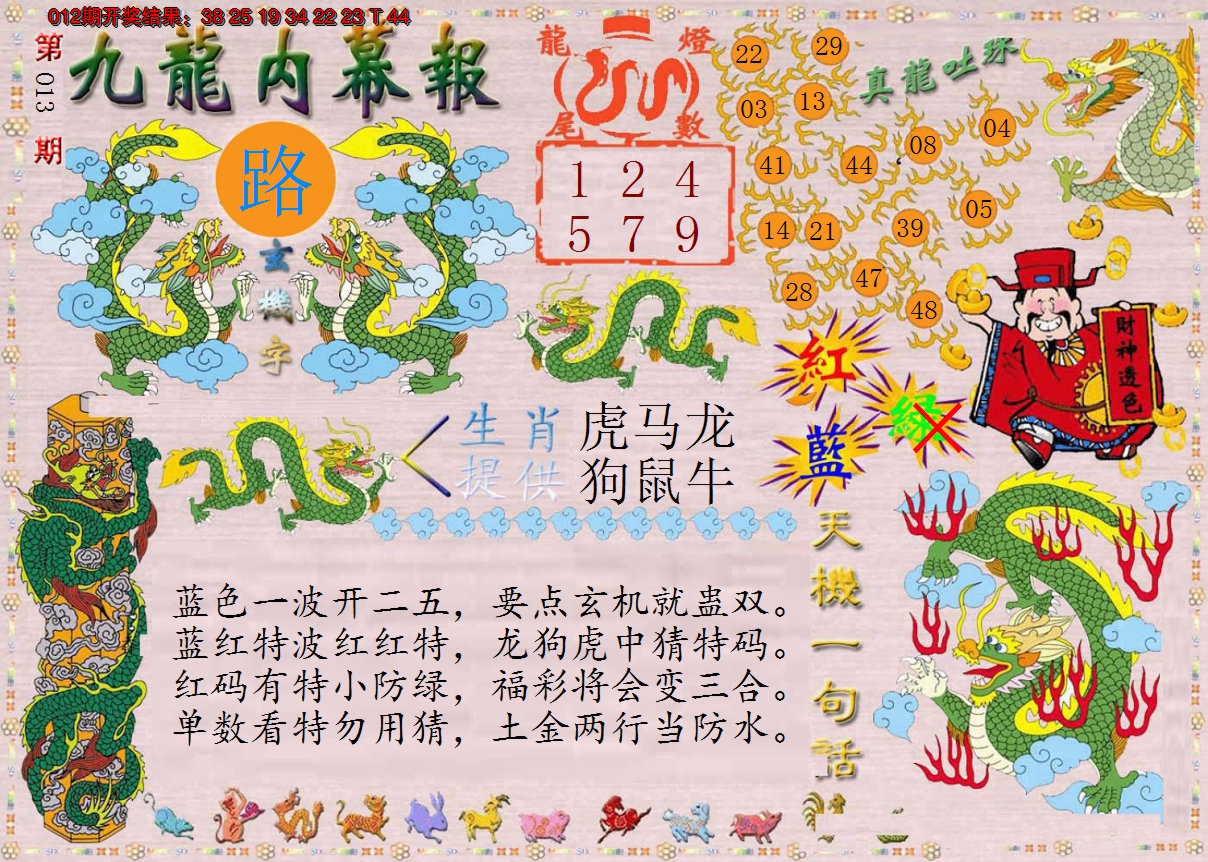 012期开奖结果：38 25 19 34 22 23 T 44
第013期
九龍内幕報
路
玄機字
龍燈
尾數
1 2 4
5 7 9
真龍吐珠
22
29
03
13
41
44
08
04
14
21
39
05
28
47
48
財神透色
紅
綠
藍
生肖
提供
虎马龙
狗鼠牛
天機一句话
蓝色一波开二五，要点玄机就蛊双。
蓝红特波红红特，龙狗虎中猜特码。
红码有特小防绿，福彩将会变三合。
单数看特勿用猜，土金两行当防水。